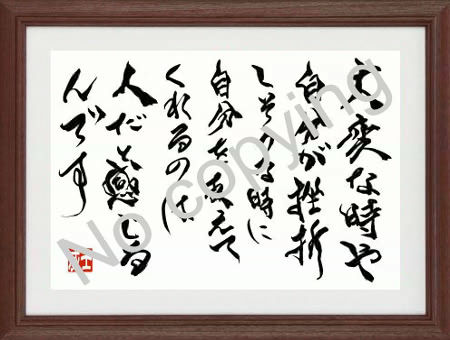 大変な時や
自分が挫折
しそうな時に
自分を支えて
くれるのは
人だと感じる
んです
No copying